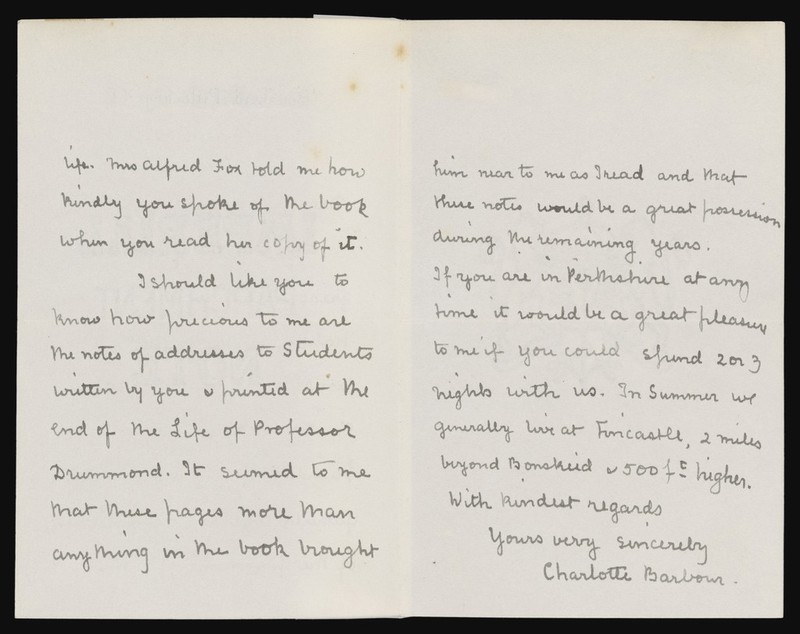 life. Mrs Alfred Fox told me how
kindly you spoke of the book
when you read her copy of it.
I should like you to
know how precious to me are
the notes of addresses to Students
written by you & printed at the
end of the Life of Professor
Drummond. It seemed to me
that these pages more than
anything in the book brought
him near to me as I read and that
these notes would be a great possession
during the remaining years.
If you are in Perthshire at any
time it would be a great pleasure
to me if you could spend 2 or 3
nights with us. In Summer we
generally live at Fincastle, 2 miles
beyond Bonskeid & 500 ft higher.
With kindest regards
Yours very sincerely
Charlotte Barbour.